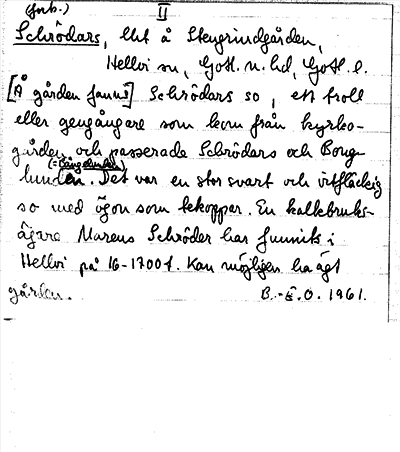 (forts.) II
Schrödars, lht å Stengrindgården,
Hellvi sn, Gotl. n. hd, Gotl. l.
[Å gården fanns] Schrödars so, ett troll
eller gengångare som kom från kyrko-
gården och passerade Schrödars och Bong-
lunden. Det var en stor svart och vitfläckig
so med ögon som tekoppar. En kalkbruks-
ägare Marcus Schröder har funnits i
Hellvi på 16-1700 t. Kan möjligen ha ägt
gården. B.-E.O. 1961.